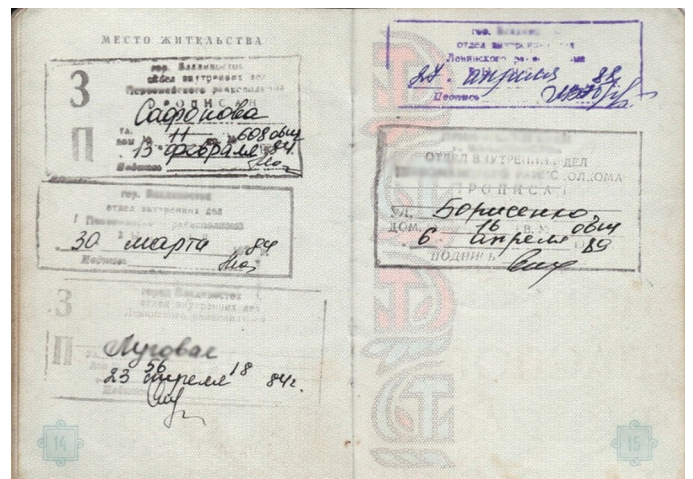 МЕСТО ЖИТЕЛЬСТВА
З
П
гор. Владивосток
отдел внутренних дел
Первомайского райисполкома
ПРОПИСАН
Сафонова
11 608 общ
13 февраля 84.
Подпись
гор. Владивосток
отдел внутренних дел
30 марта 84
Подпись
З
П
город Владивосток
отдел внутренних дел
Ленинского райисполкома
Луговая
56 18
23 апреля 84г.
14
гор.
отдел внутренних дел
Ленинского
27. апреля 88
Подпись
ОТДЕЛ ВНУТРЕННИХ ДЕЛ
ПРОПИСАН
УЛ. Борисенко
ДОМ. 16 КВ. № общ
6 апреля 89
ПОДПИСЬ
15